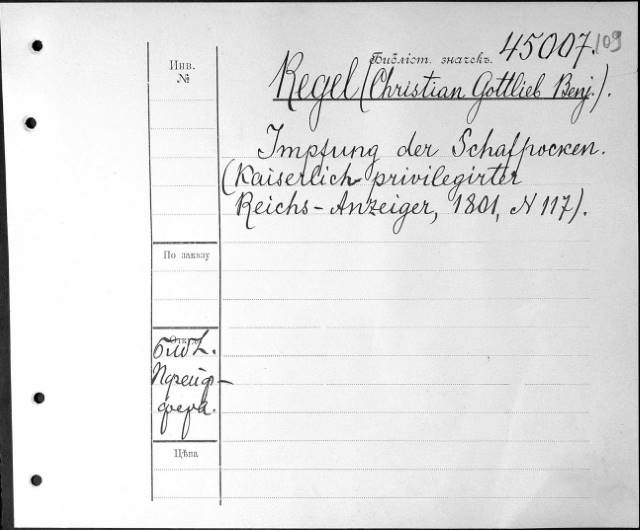 45007. 109
Библіот. значекъ.
Инв.
№
Regel (Christian Gottlieb Benj.).
Impfung der Schafpocken.
(Kaiserlich privilegirter
Reichs-Anzeiger, 1801, N 117).
По заказу
Откуда
Библ.
Пфейф-
фера.
Цѣна